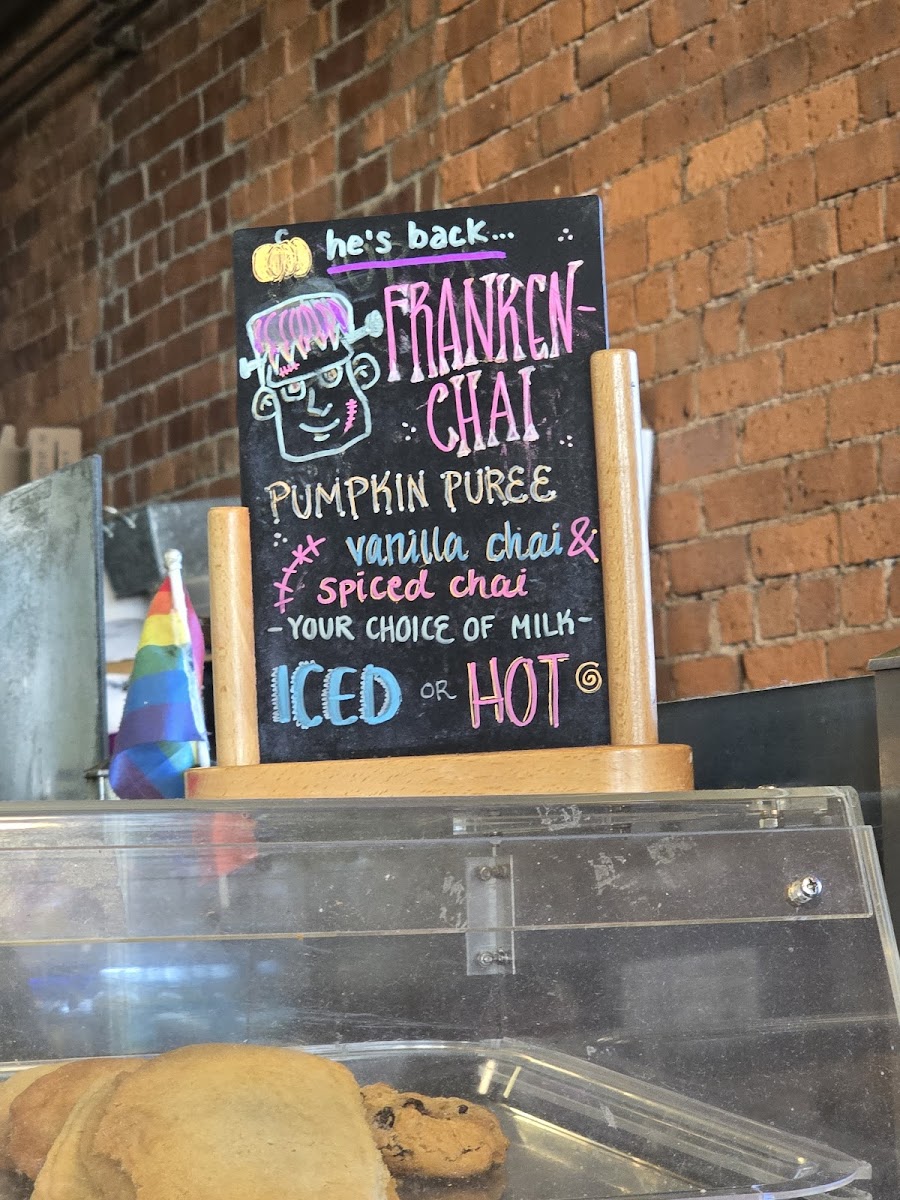 he's back...
FRANKEN-
CHAI
PUMPKIN PUREE
vanilla chai &
spiced chai
-YOUR CHOICE OF MILK-
ICED OR HOT